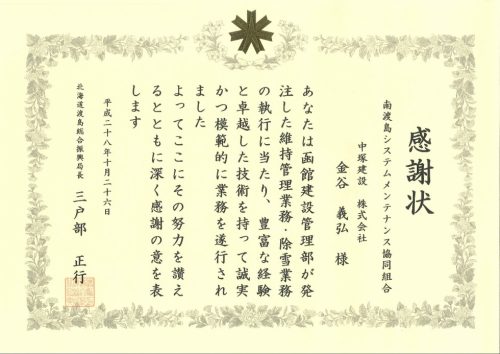 感謝状
南渡島システムメンテナンス協同組合
中塚建設　株式会社
金谷　義弘　様
あなたは函館建設管理部が発
注した維持管理業務・除雪業務
の執行に当たり、豊富な経験
と卓越した技術を持って誠実
かつ模範的に業務を遂行され
ました
よってここにその努力を讃え
るとともに深く感謝の意を表
します
平成二十八年十月二十六日
北海道渡島総合振興局長　三戸部　正行